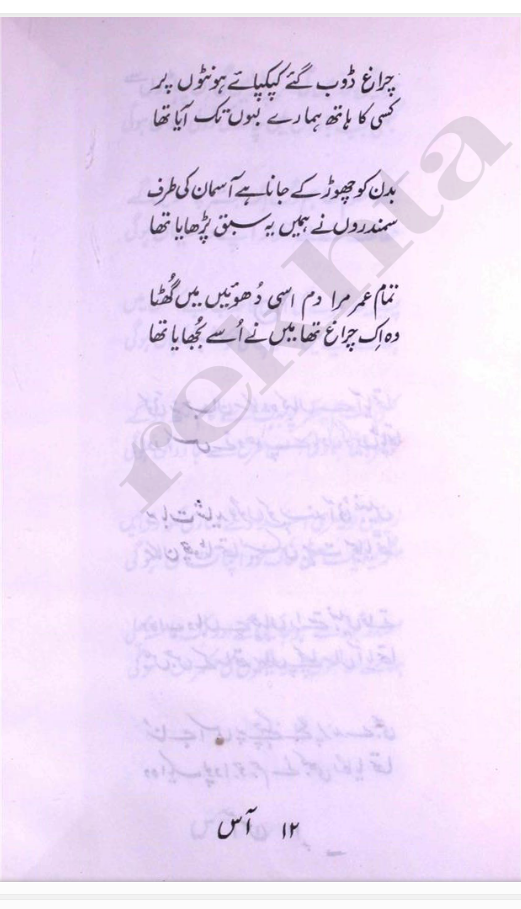 چراغ ڈوب گئے کپکپائے ہونٹوں پر
کسی کا ہاتھ ہمارے لبوں تک آیا تھا
بدن کو چھوڑ کے جانا ہے آسمان کی طرف
سمندروں نے ہمیں یہ سبق پڑھایا تھا
تمام عمر مرا دم اسی دُھوئیں میں گُھٹا
وہ اِک چراغ تھا میں نے اُسے بُجھایا تھا
rekhta
۱۲ آس